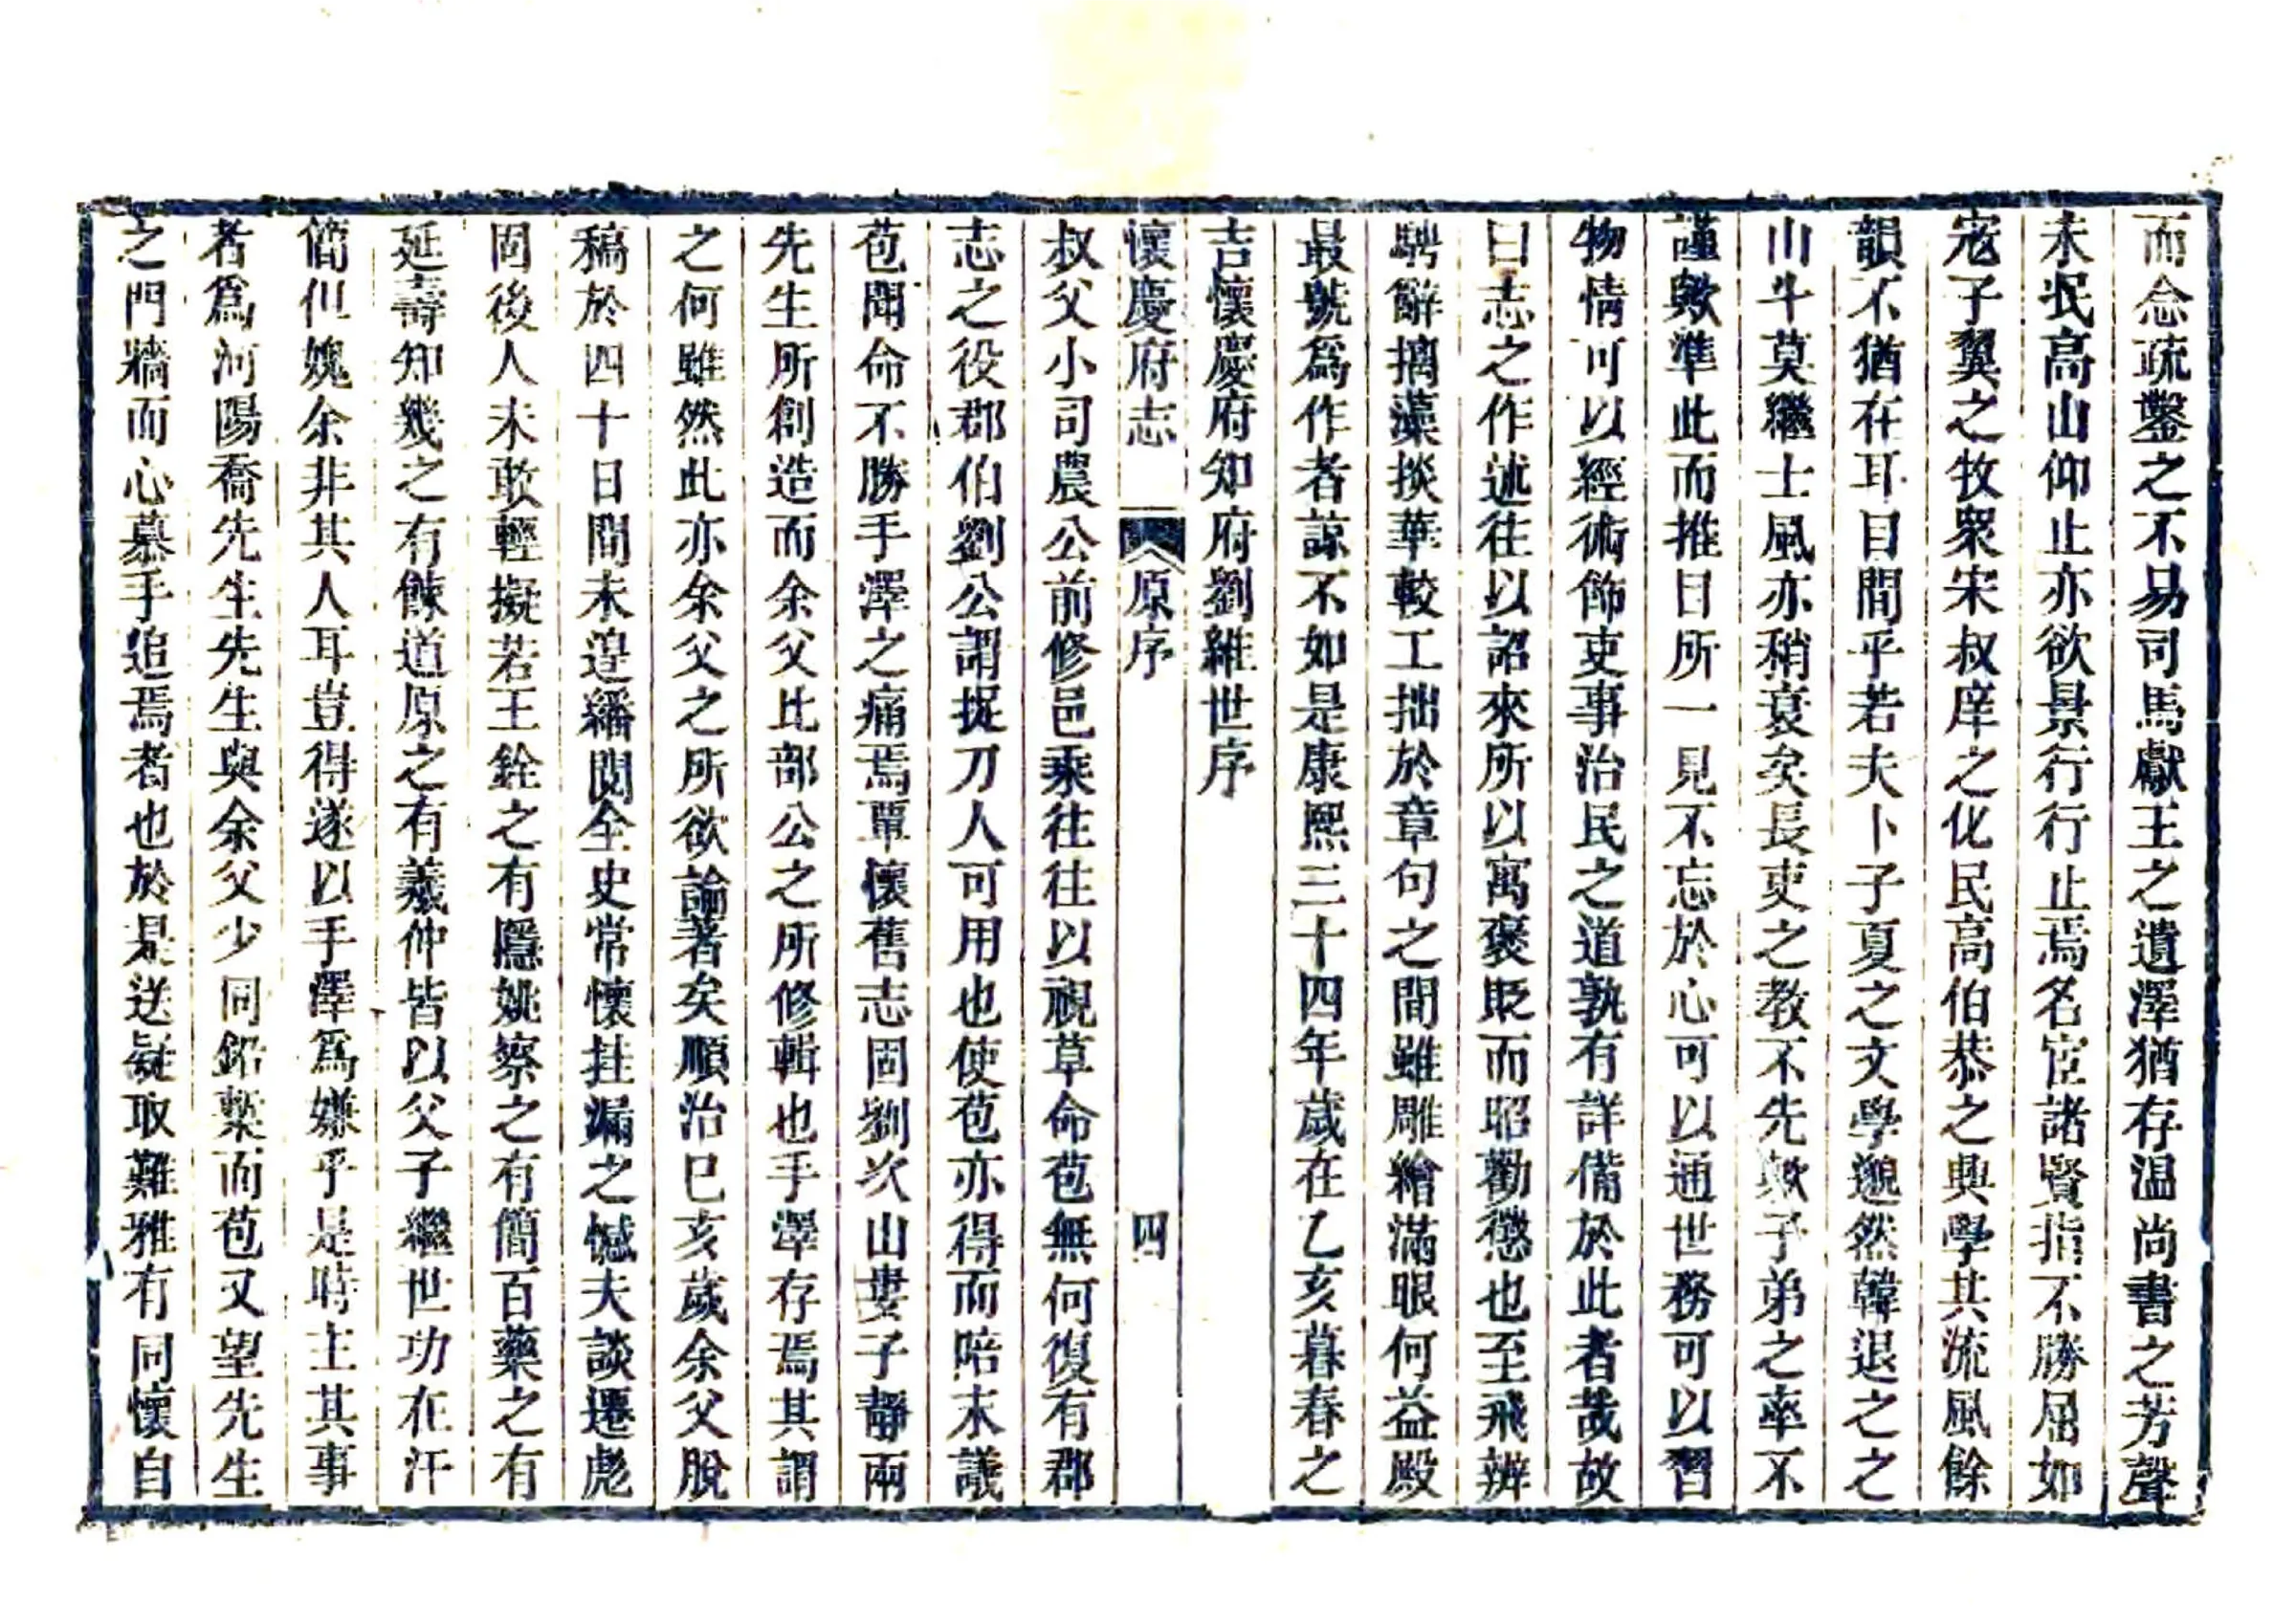 而念疏鑿之不易司馬獻王之遺澤猶存温尚書之芳聲
未泯高山仰止亦欲景行行止焉名宦諸賢指不勝屈如
寇子翼之牧衆宋叔庠之化民高伯恭之興學其流風餘
韻不猶在耳目間乎若夫卜子夏之文學邈然韓退之之
山斗莫繼士風亦稍衰矣長吏之教不先歟子弟之率不
謹歟準此而推日所一見不忘於心可以通世務可以習
物情可以經術飾吏事治民之道孰有詳備於此者哉故
曰志之作述往以詔來所以寓褒貶而昭勸懲也至飛辨
騁辭摛藻掞華較工拙於章句之間雖雕繪滿眼何益殿
最號爲作者諒不如是康熙三十四年歲在乙亥暮春之
吉懷慶府知府劉維世序
懷慶府志 原序 四
叔父小司農公前修邑乘往往以視草命苞無何復有郡
志之役郡伯劉公謂捉刀人可用也使苞亦得而陪末議
苞聞命不勝手澤之痛焉覃懷舊志固劉次山婁子靜兩
先生所創造而余父比部公之所修輯也手澤存焉其謂
之何雖然此亦余父之所欲論著矣順治巳亥歲余父脫
稿於四十日間未遑繙閱全史常懷挂漏之憾夫談遷彪
固後人未敢輕擬若王銓之有隱姚察之有簡百藥之有
延壽知幾之有餗道原之有羲仲皆以父子繼世功在汗
簡但媿余非其人耳豈得遂以手澤爲嫌乎是時主其事
者爲河陽喬先生先生與余父少同鉛槧而苞又望先生
之門牆而心慕手追焉者也於是送疑取難雅有同懷自